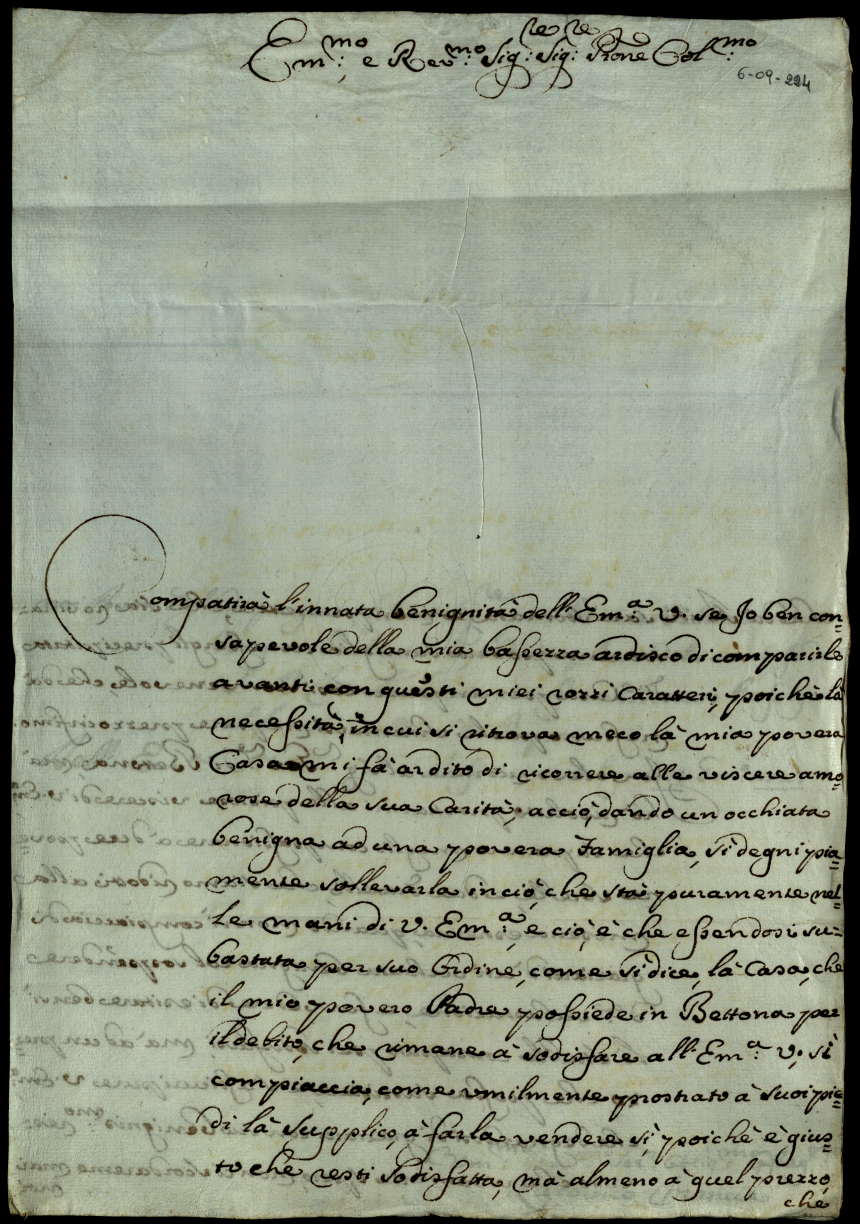 Em.mo e Rev.mo Sig.re Sig.re Prone Col.mo
6-09-224
Compatirà l'innata benignità dell'Em.a V. se Jo ben con=
sapevole della mia bassezza ardisco di comparirle
avanti con questi miei rozzi Caratteri, poichè là
necessità, in cui si ritrova meco là mia povera
Casa mi fà ardito di ricorrere alle viscere amo=
rose della sua Carità, acciò, dando un occhiata
benigna ad una povera Famiglia, si degni pia=
mente sollevarla in ciò, che stà puramente nel=
le mani di V. Em.a, e ciò, è che essendosi su=
bastata per suo Ordine, come si dice, là Casa, che
il mio povero Padre possiede in Bettona per
il debito, che rimane à sodisfare all'Em.a V., si
compiaccia, come umilmente prostrato à suoi pie=
di là supplico, à farla vendere sì, poichè è gius=
to che resti sodisfatta, mà almeno à quel prezzo,
che